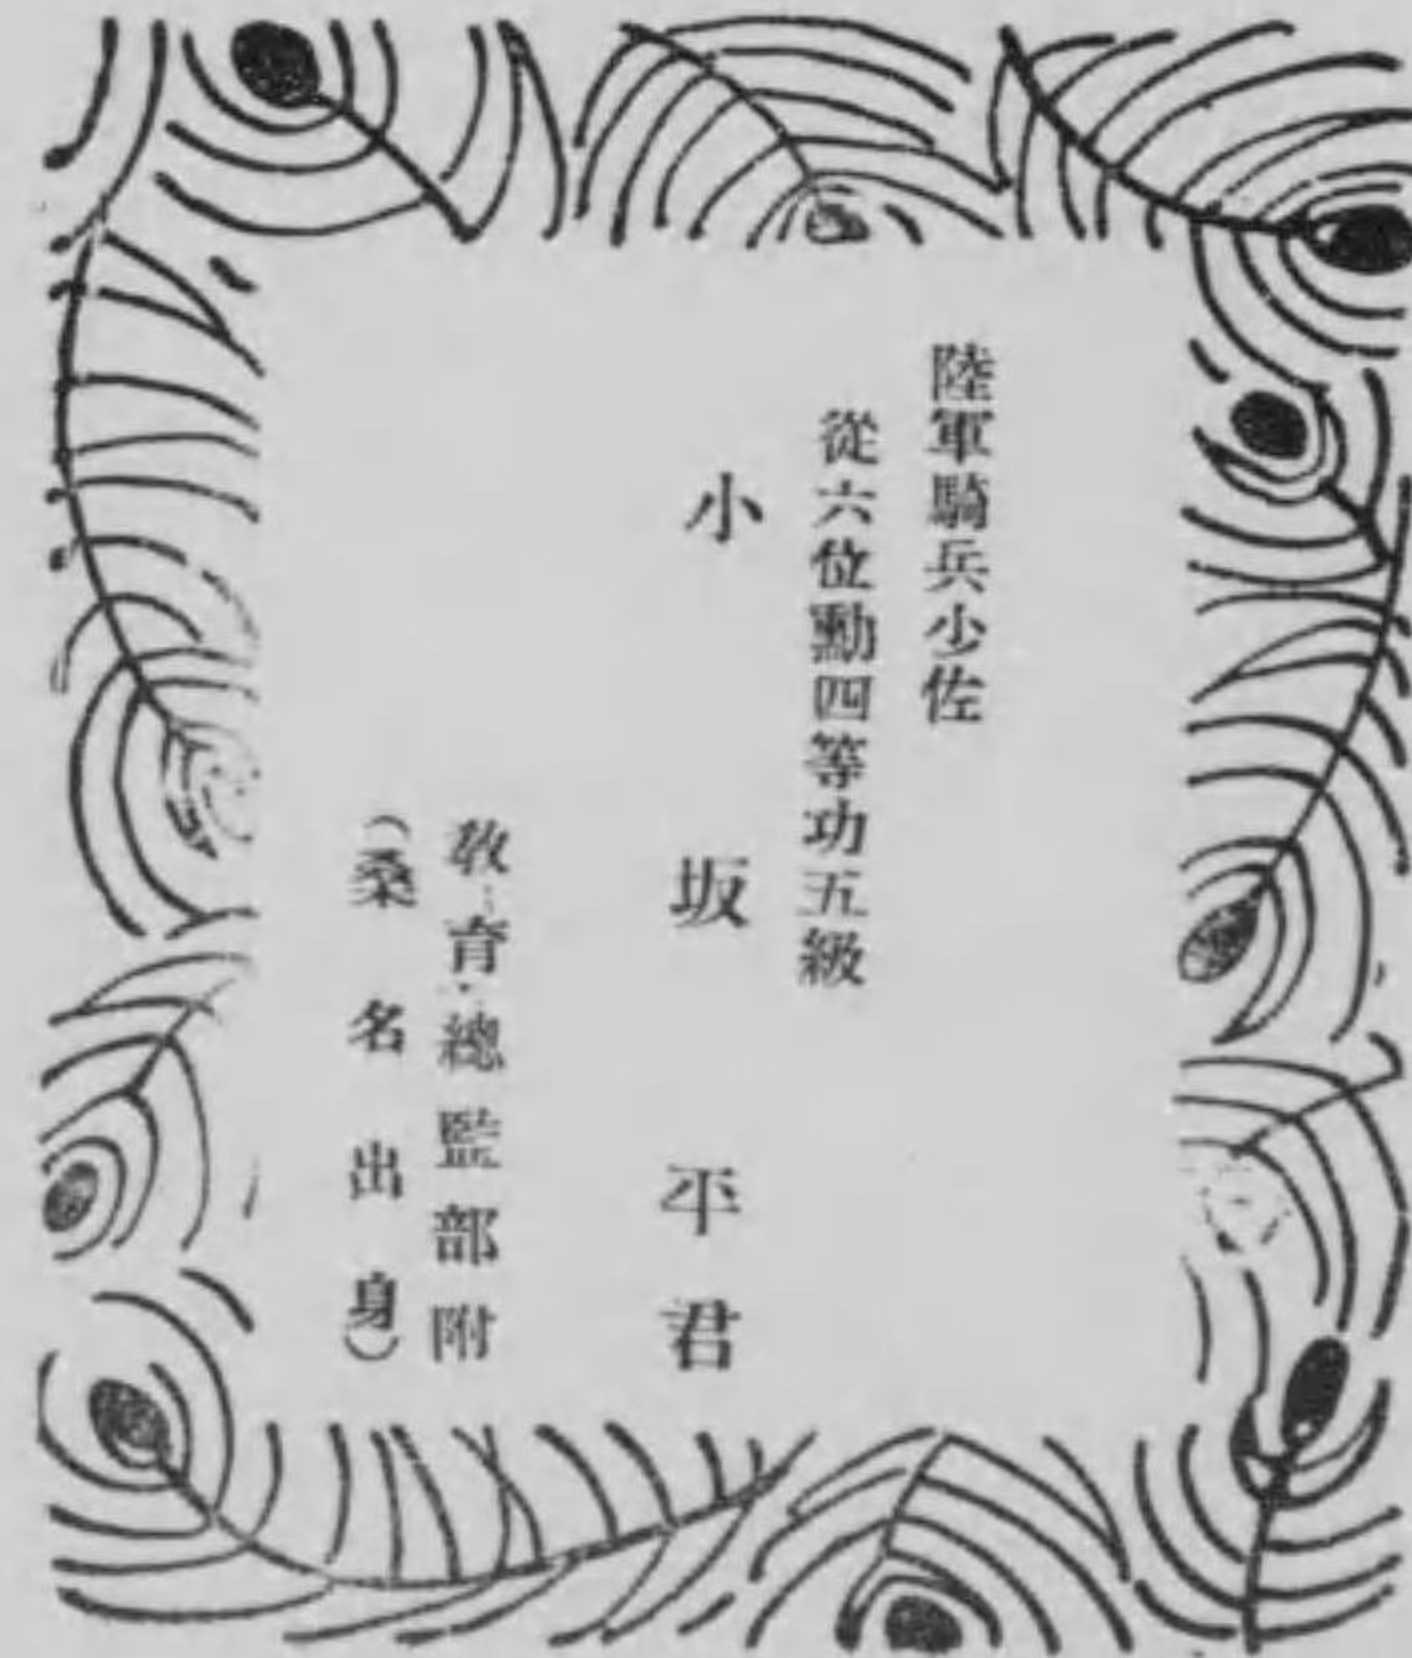 陸軍騎兵少佐
從六位勳四等功五級
小坂平君
教育總監部附
（桑名出身）